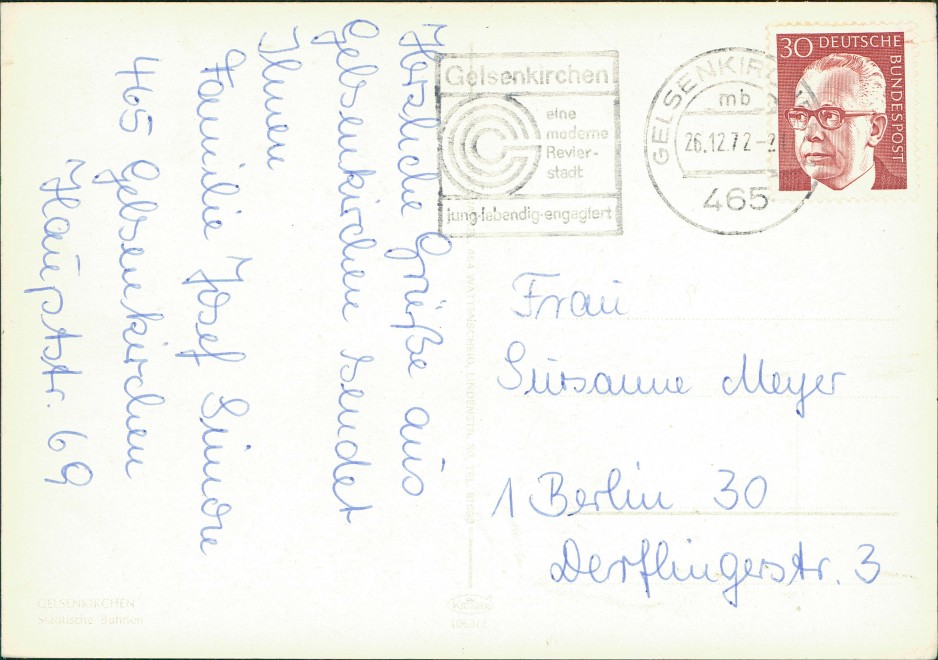 Herzliche Grüße aus
Gelsenkirchen sendet
Ihnen
Familie Josef Simon
465 Gelsenkirchen
Hauptstr. 69
Gelsenkirchen
eine
moderne
Revier-
stadt
jung·lebendig·engagiert
GELSENKIRCHEN
mb
26.12.72-2
465
30 DEUTSCHE
BUNDESPOST
Frau
Sussanne Meyer
1 Berlin 30
Derfflingerstr. 3
GELSENKIRCHEN
Städtische Bühnen